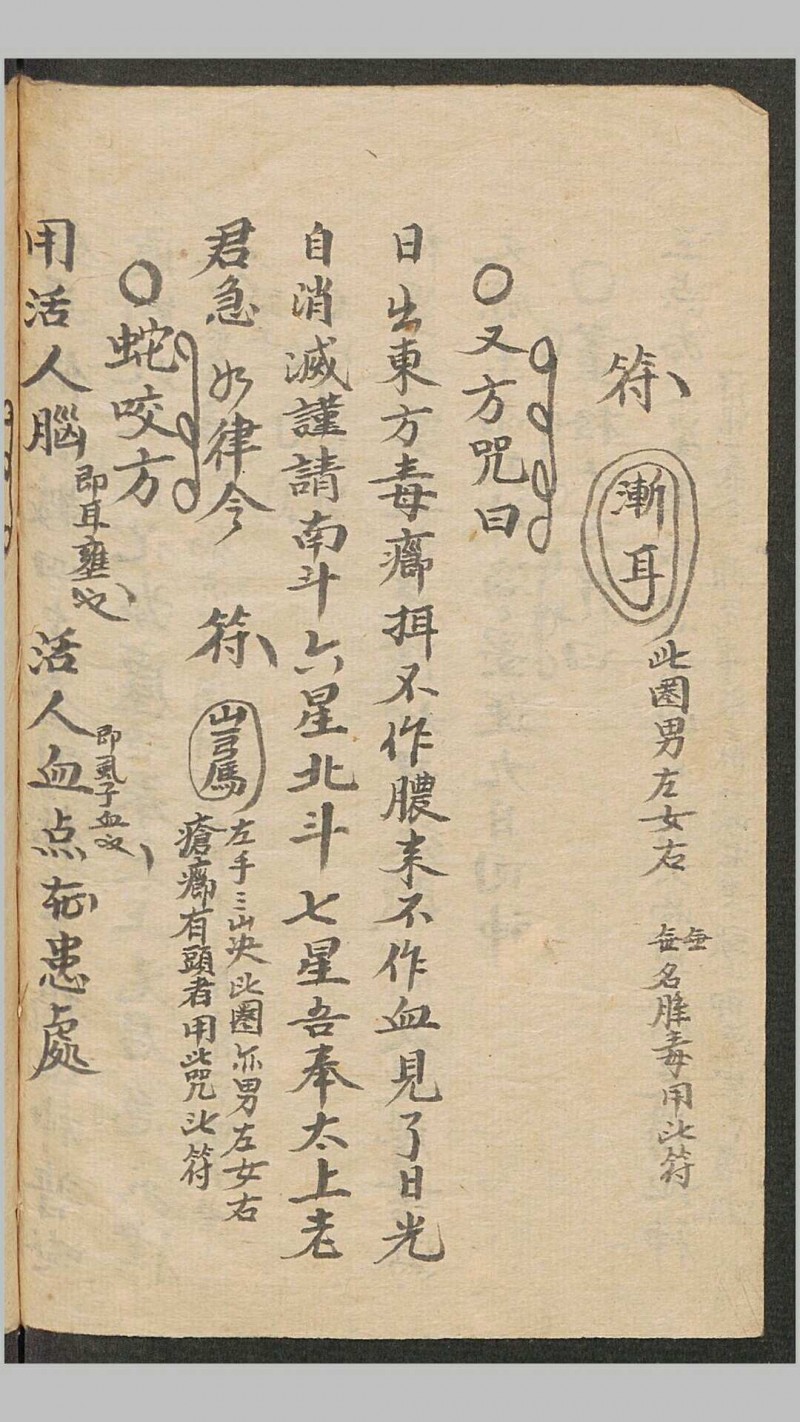 符 漸耳 此圈男左女右 無名腫毒用此符
○又方咒曰
日出東方毒癤揖不作膿來不作血見了日光
自消滅謹請南斗六星北斗七星吾奉太上老
君急如律令 符
左手三山決此圈亦男左女右
瘡癤有頭者用此咒此符
○蛇咬方
用活人腦 即耳壅也 活人血 即虱子血也 点在患處